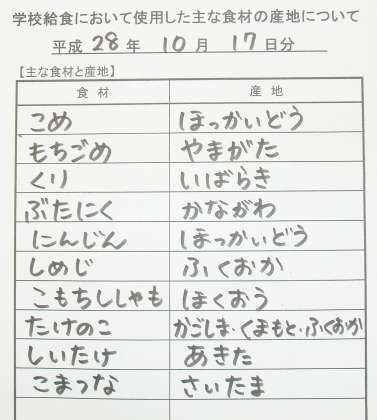 学校給食において使用した主な食材の産地について
平成 28 年 10 月 17 日分
【主な食材と産地】
食材 産地
こめ ほっかいどう
もちごめ やまがた
くり いばらき
ぶたにく かながわ
にんじん ほっかいどう
しめじ ふくおか
こもちししゃも ほくおう
たけのこ かごしま・くまもと・ふくおか
しいたけ あきた
こまつな さいたま